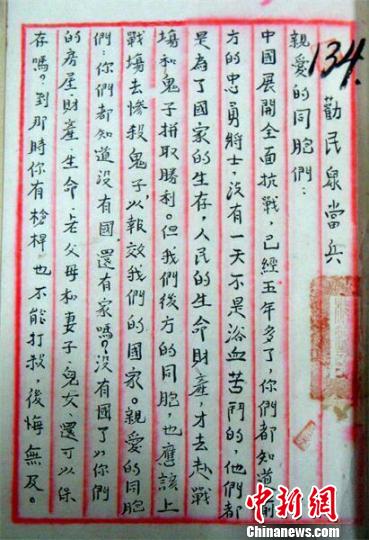 134.
勸民衆當兵
親愛的同胞們：
中國展開全面抗戰，已經五年多了，你們都知道前
方的忠勇將士，沒有一天不是浴血苦鬥的，他們都
是為了國家的生存，人民的生命財產，才去赴戰
場和鬼子拼取勝利。但我們後方的同胞，也應該上
戰場去慘殺鬼子，以報效我們的國家。親愛的同胞
們：你們都知道沒有國，還有家嗎？沒有國了，你們
的房屋·財產·生命·老父母和妻子·兒女·還可以保
存嗎？到那時你有槍桿，也不能打殺，後悔無及。
中新網
www.chinanews.com